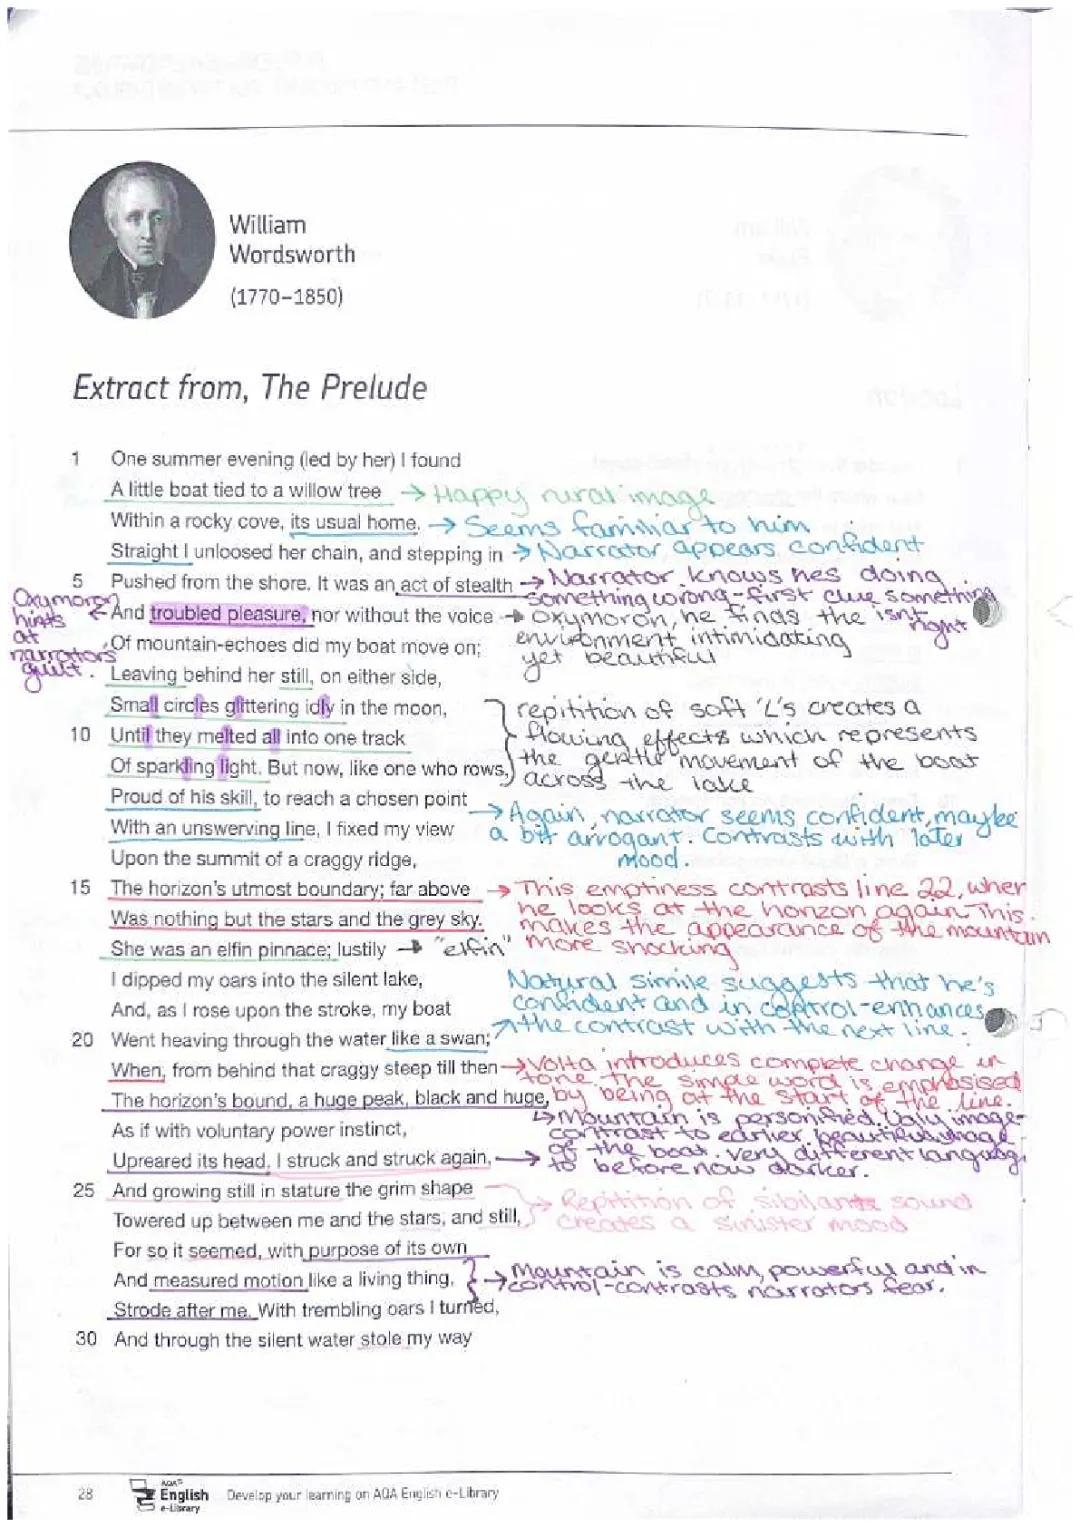 William
Wordsworth
(1770–1850)
Extract from, The Prelude
1 One summer evening (led by her) I found
A little boat tied to a willow tree → Happy rural image
Within a rocky cove, its usual home. → Seems familiar to him
Straight I unloosed her chain, and stepping in → Narrator appears confident
5 Pushed from the shore. It was an act of stealth → Narrator knows hes doing something wrong - first clue something isn't right
Oxymoron hints at narrators guilt.
And troubled pleasure, nor without the voice → oxymoron, he finds the environment intimidating yet beautiful
Of mountain-echoes did my boat move on;
Leaving behind her still, on either side,
Small circles glittering idly in the moon,
10 Until they melted all into one track
Of sparkling light. But now, like one who rows,
repitition of soft 'L's creates a
flowing effects which represents
the gentle movement of the boat
across the lake
Proud of his skill, to reach a chosen point
With an unswerving line, I fixed my view
→ Again, narrator seems confident, maybe
a bit arrogant. Contrasts with later
mood.
Upon the summit of a craggy ridge,
15 The horizon's utmost boundary; far above
Was nothing but the stars and the grey sky.
→ This emptiness contrasts line 22, wher
he looks at the horizon again. This
makes the appearance of the mountain
more shocking
She was an elfin pinnace; lustily → "elfin"
I dipped my oars into the silent lake,
And, as I rose upon the stroke, my boat
20 Went heaving through the water like a swan;
Natural simile suggests that he's
confident and in control - enhances
the contrast with the next line.
When, from behind that craggy steep till then
→ Volta introduces complete change in
tone. The simple word is emphasised
by being at the start of the line.
The horizon's bound, a huge peak, black and huge,
As if with voluntary power instinct,
Upreared its head. I struck and struck again,
Mountain is personified. Ugly image-
contrast to earlier beautiful image
of the boat. Very different language
to before now darker.
25 And growing still in stature the grim shape
Towered up between me and the stars, and still,
→ Repitition of sibilants sound
creates a sinister mood
For so it seemed, with purpose of its own
And measured motion like a living thing,
Strode after me. With trembling oars I turned,
→ Mountain is calm, powerful and in
control - contrasts narrators fear.
30 And through the silent water stole my way
28
AQA
English
e-Library
Develop your learning on AQA English e-Library